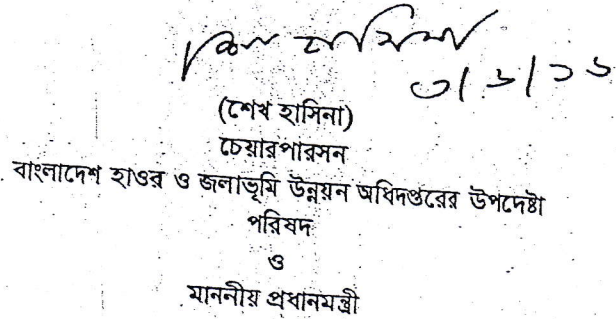 শেখ হাসিনা
(শেখ হাসিনা)
চেয়ারপারসন
বাংলাদেশ হাওর ও জলাভূমি উন্নয়ন অধিদপ্তরের উপদেষ্টা
পরিষদ
ও
মাননীয় প্রধানমন্ত্রী